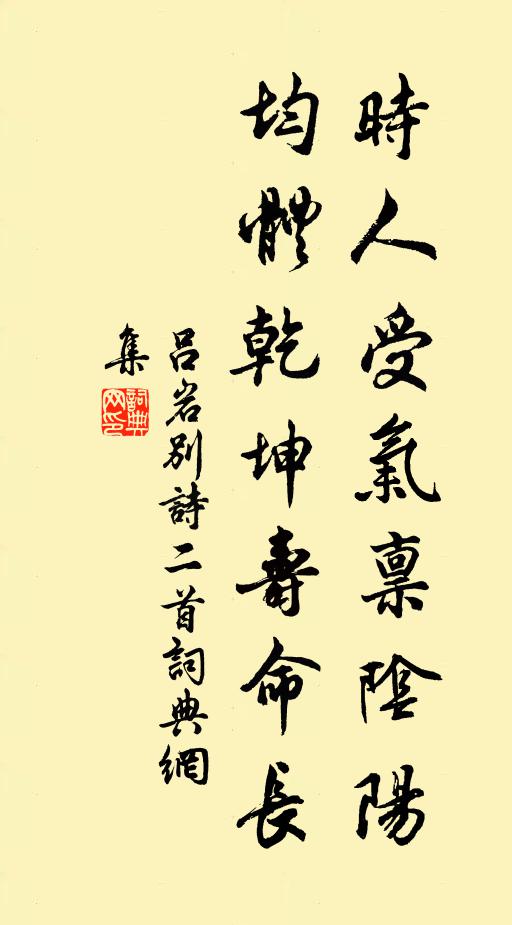 時人受氣稟陰陽
均體乾坤壽命長
呂岩別詩二首詞典網
集
詞典
网印